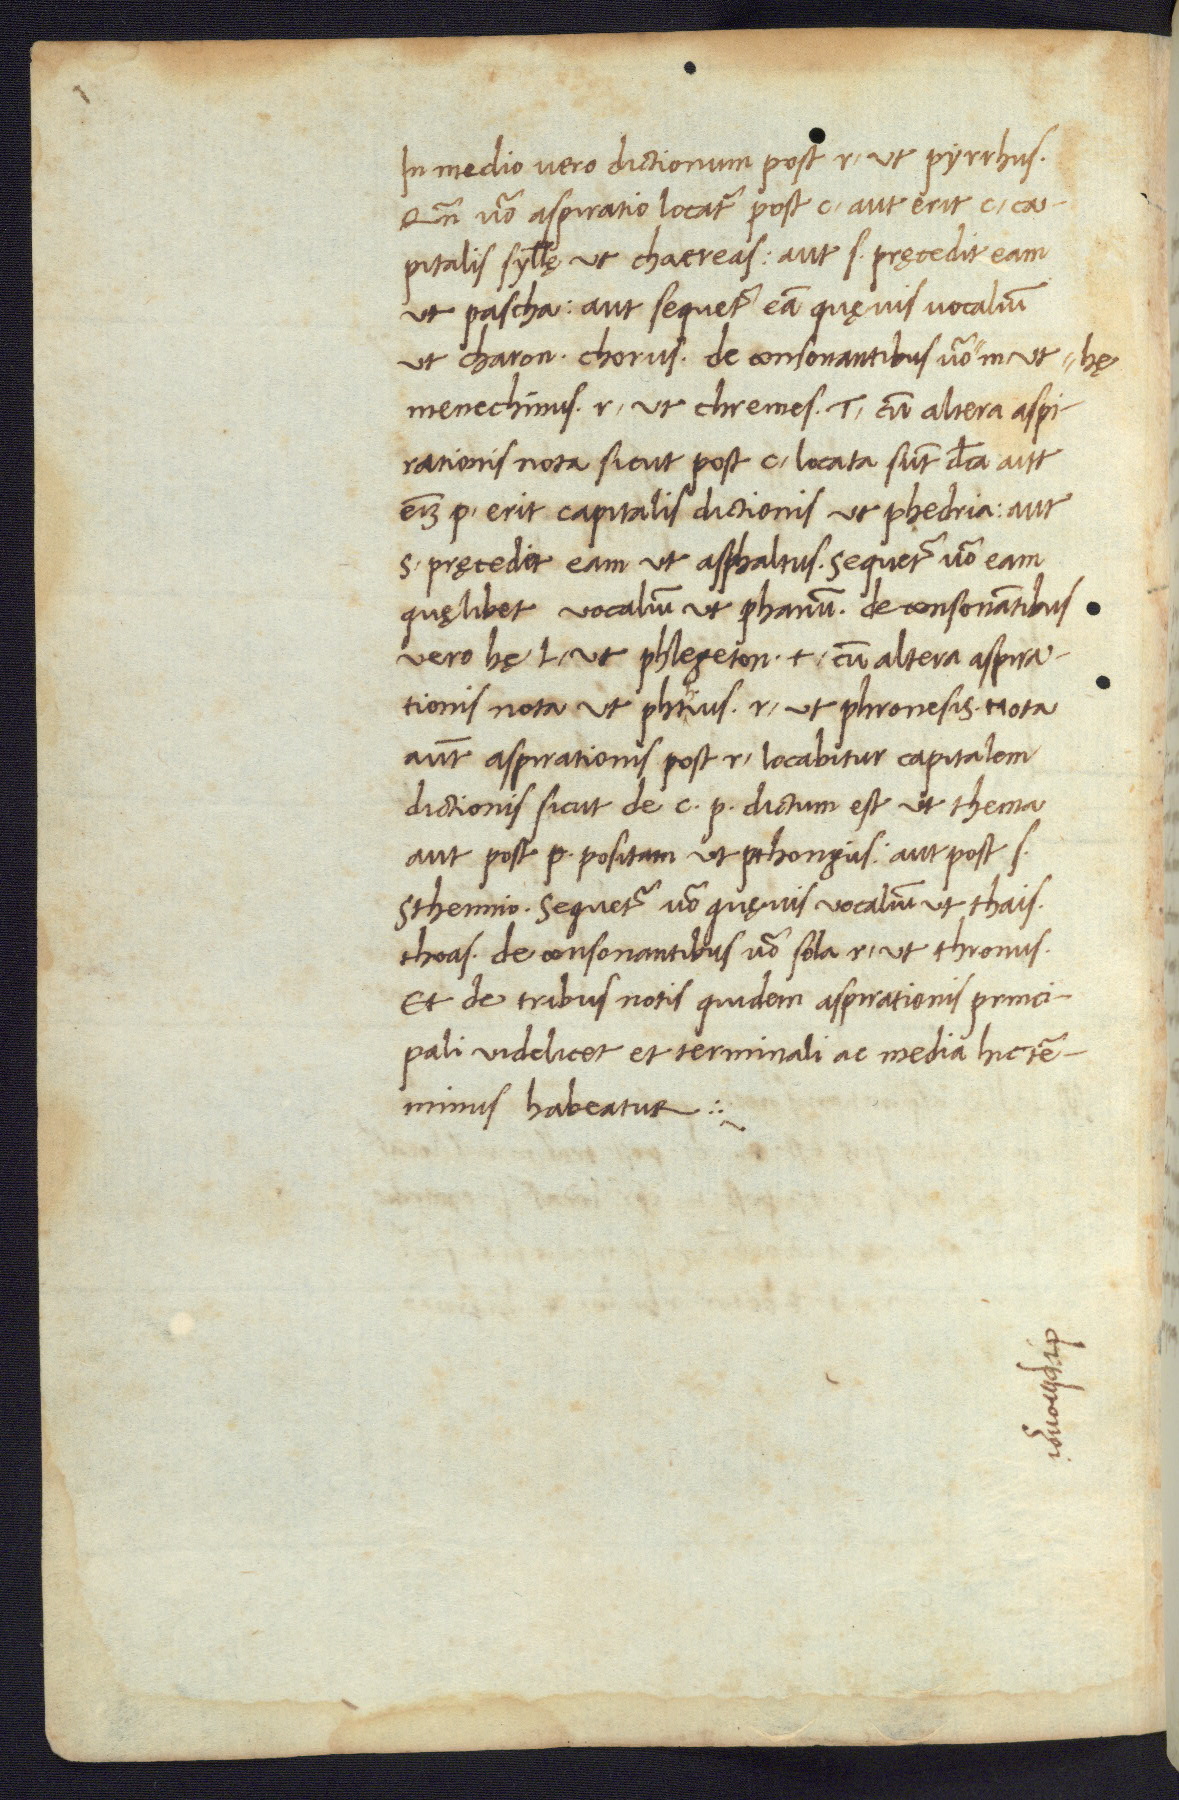 In medio uero dictionum post r, ut pyrrhus.
Qn̄ uō aspiratio locat̄ post c, aut erit c, ca-
pitalis syll̄ę ut chaereas: aut s. pręcedit eam
ut pascha: aut sequet̄ eā quęuis uocaliū
ut charon. chorus. de consonantibus uō "m, ut "hę
menechinus. r, ut chremes. T, cū altera aspi-
rationis nota sicut post c, locata sūt dc̄a aut
em̄ p, erit capitalis dictionis ut phedria: aut
s, pręcedit eam ut asphaltus. sequet̄ uō eam
quęlibet vocaliū ut phanū. de consonātibus
vero hę l, ut phlegeton. t, cū altera aspira-
tionis nota ut phthius. r, ut phronesis. Nota
aūt aspirationis post r, locabitur capitalem
dictionis sicut de c. p. dictum est ut thema
aut post p. positam ut pthongus: aut post s.
Sthennio. Sequet̄ uō quęuis vocaliū ut thais.
thoas. de consonantibus uō sola r, ut thronus.
Et de tribus notis quidem aspirationis princi-
pali videlicet et terminali ac media hic tē-
minus habeatur :~
diphtongi